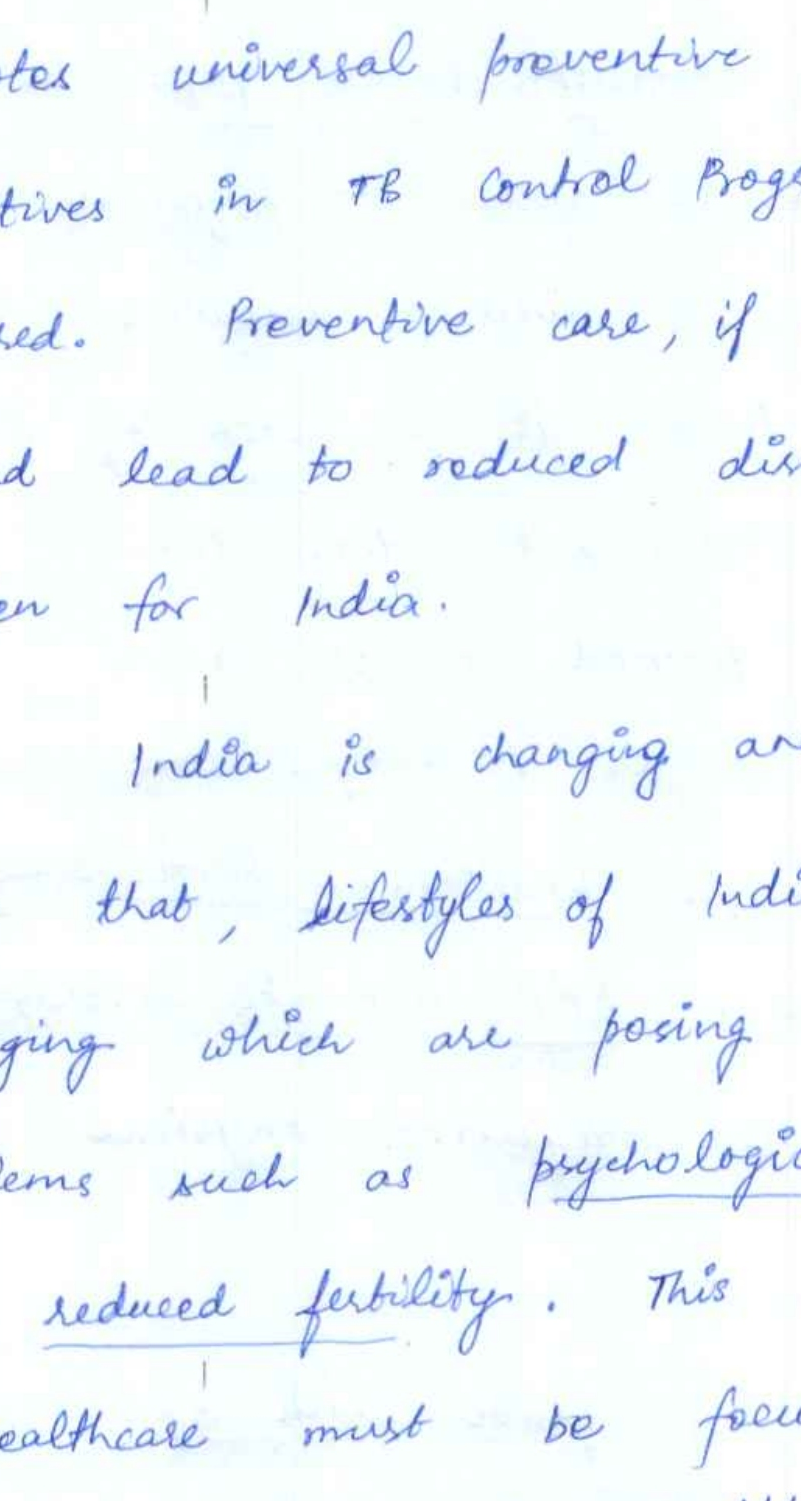 tes universal preventive
tives in TB Control Progr
sed. Preventive care, if
d lead to reduced dis
en for India.
India is changing an
that, lifestyles of Indi
ging which are posing
lems such as psychologic
reduced fertility. This
ealthcare must be focu